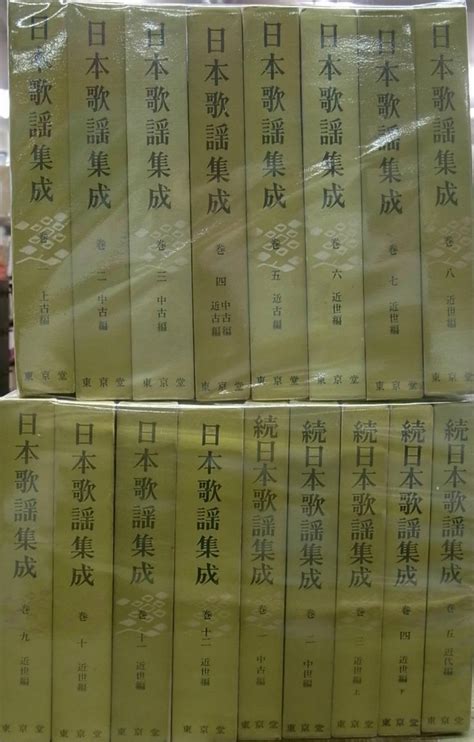 日本歌謡集成 巻一 上古編 東京堂
日本歌謡集成 巻二 中古編 東京堂
日本歌謡集成 巻三 中古編 東京堂
日本歌謡集成 巻四 中古編 近古編 東京堂
日本歌謡集成 巻五 近古編 東京堂
日本歌謡集成 巻六 近世編 東京堂
日本歌謡集成 巻七 近世編 東京堂
日本歌謡集成 巻八 近世編 東京堂
日本歌謡集成 巻九 近世編 東京堂
日本歌謡集成 巻十 近世編 東京堂
日本歌謡集成 巻十一 近世編 東京堂
日本歌謡集成 巻十二 近世編 東京堂
続日本歌謡集成 巻一 中古編 東京堂
続日本歌謡集成 巻二 中世編 東京堂
続日本歌謡集成 巻三 近世編 上 東京堂
続日本歌謡集成 巻四 近世編 下 東京堂
続日本歌謡集成 巻五 近代編 東京堂